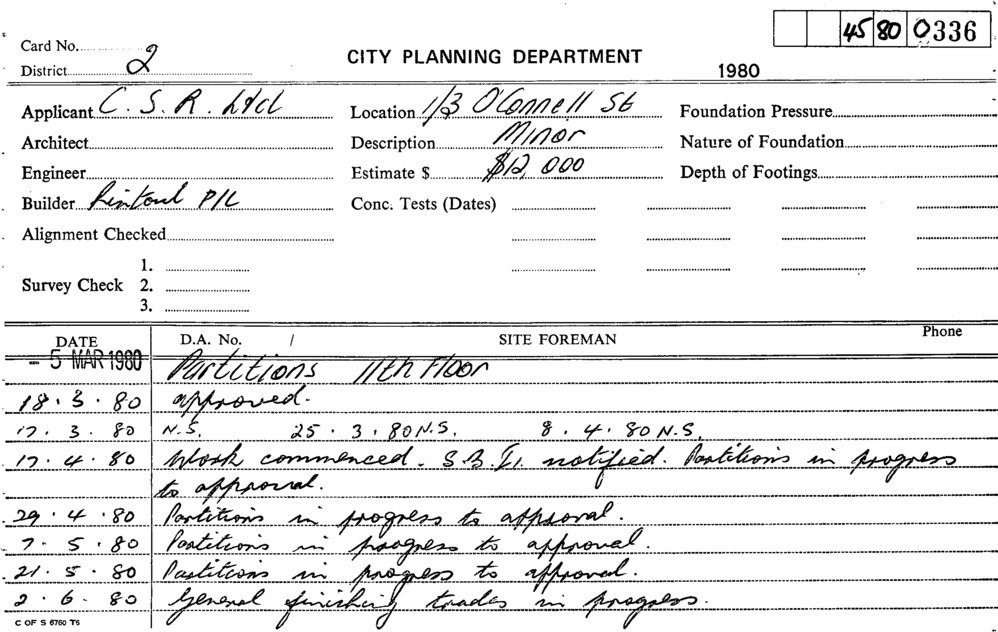 45 80 0336
Card No.
District 2
CITY PLANNING DEPARTMENT
1980
Applicant C. S. R. Ltd
Location 1/3 O'Connell St
Foundation Pressure
Architect
Description Minor
Nature of Foundation
Engineer
Estimate $ $12,000
Depth of Footings
Builder Rintoul P/L
Conc. Tests (Dates)
Alignment Checked
Survey Check 1.
2.
3.
DATE D.A. No. / SITE FOREMAN Phone
- 5 MAR 1980 Partitions 11th Floor
18.3.80 approved.
17.3.80 N.S. 25.3.80 N.S. 8.4.80 N.S.
17.4.80 Work commenced. S.B.I. notified. Partitions in progress
to approval.
29.4.80 Partitions in progress to approval.
7.5.80 Partitions in progress to approval.
21.5.80 Partitions in progress to approval.
2.6.80 General finishing trades in progress.
C OF S 6760 T6